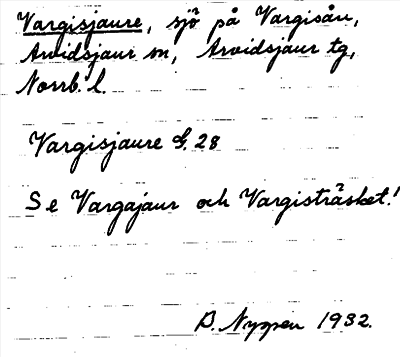 Vargisjaure, sjö på Vargisån,
Arvidsjaur sn, Arvidsjaur tg,
Norrb. l.
Vargisjaure G. 28
Se Vargajaur och Vargisträsket!
B. Nyppen 1932.